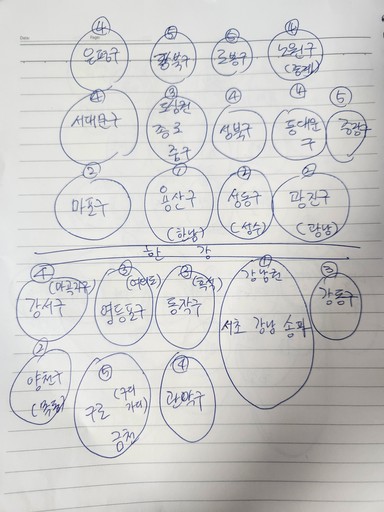 ④ ⑤ ⑤ ④
은평구 강북구 도봉구 노원구
(중계)
④ ③ ④ ④ ⑤
서대문구 도심권 성북구 동대문구 중랑구
종로
중구
② ① ② ②
마포구 용산구 성동구 광진구
(한남) (성수) (광남)
한 강
④ ③ ② ① ③
(마곡지구) (여의도) (흑석) 강남권
강서구 영등포구 동작구 서초 강남 송파 강동구
② ⑤ ④
양천구 구로 관악구
(목동)
금천